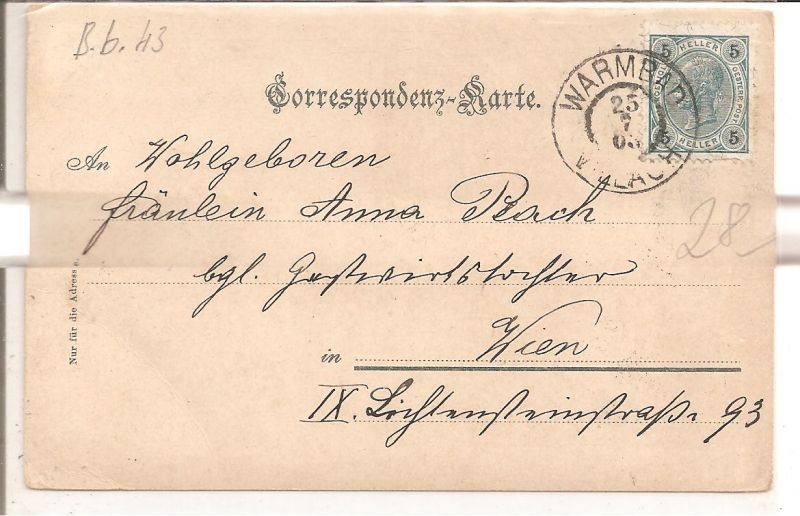 B.b. 43
5 HELLER 5
OESTERR. POST.
5 HELLER 5
WARMBAD
25
7
03
VILLACH
Correspondenz-Karte.
An Wohlgeboren
Fräulein Anna Plach
bgl. Gastwirtstochter
28
Nur für die Adresse.
in Wien
IX. Lichtensteinstraße 93